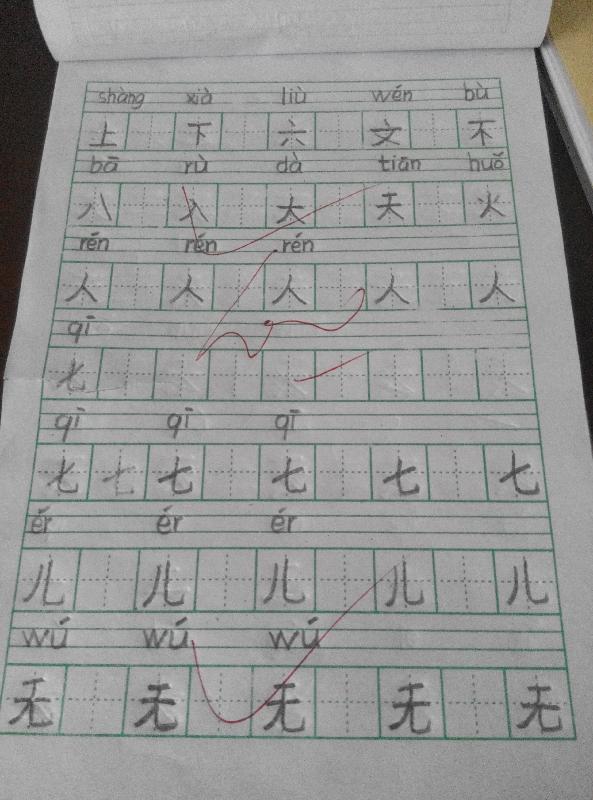 shàng xià liù wén bù
上 下 六 文 不
bā rù dà tiān huǒ
八 入 大 天 火
rén rén rén
人 人 人 人 人
qī
七
qī qī qī
七 七 七 七 七 七
ér ér ér
儿 儿 儿 儿 儿
wú wú wú
无 无 无 无 无